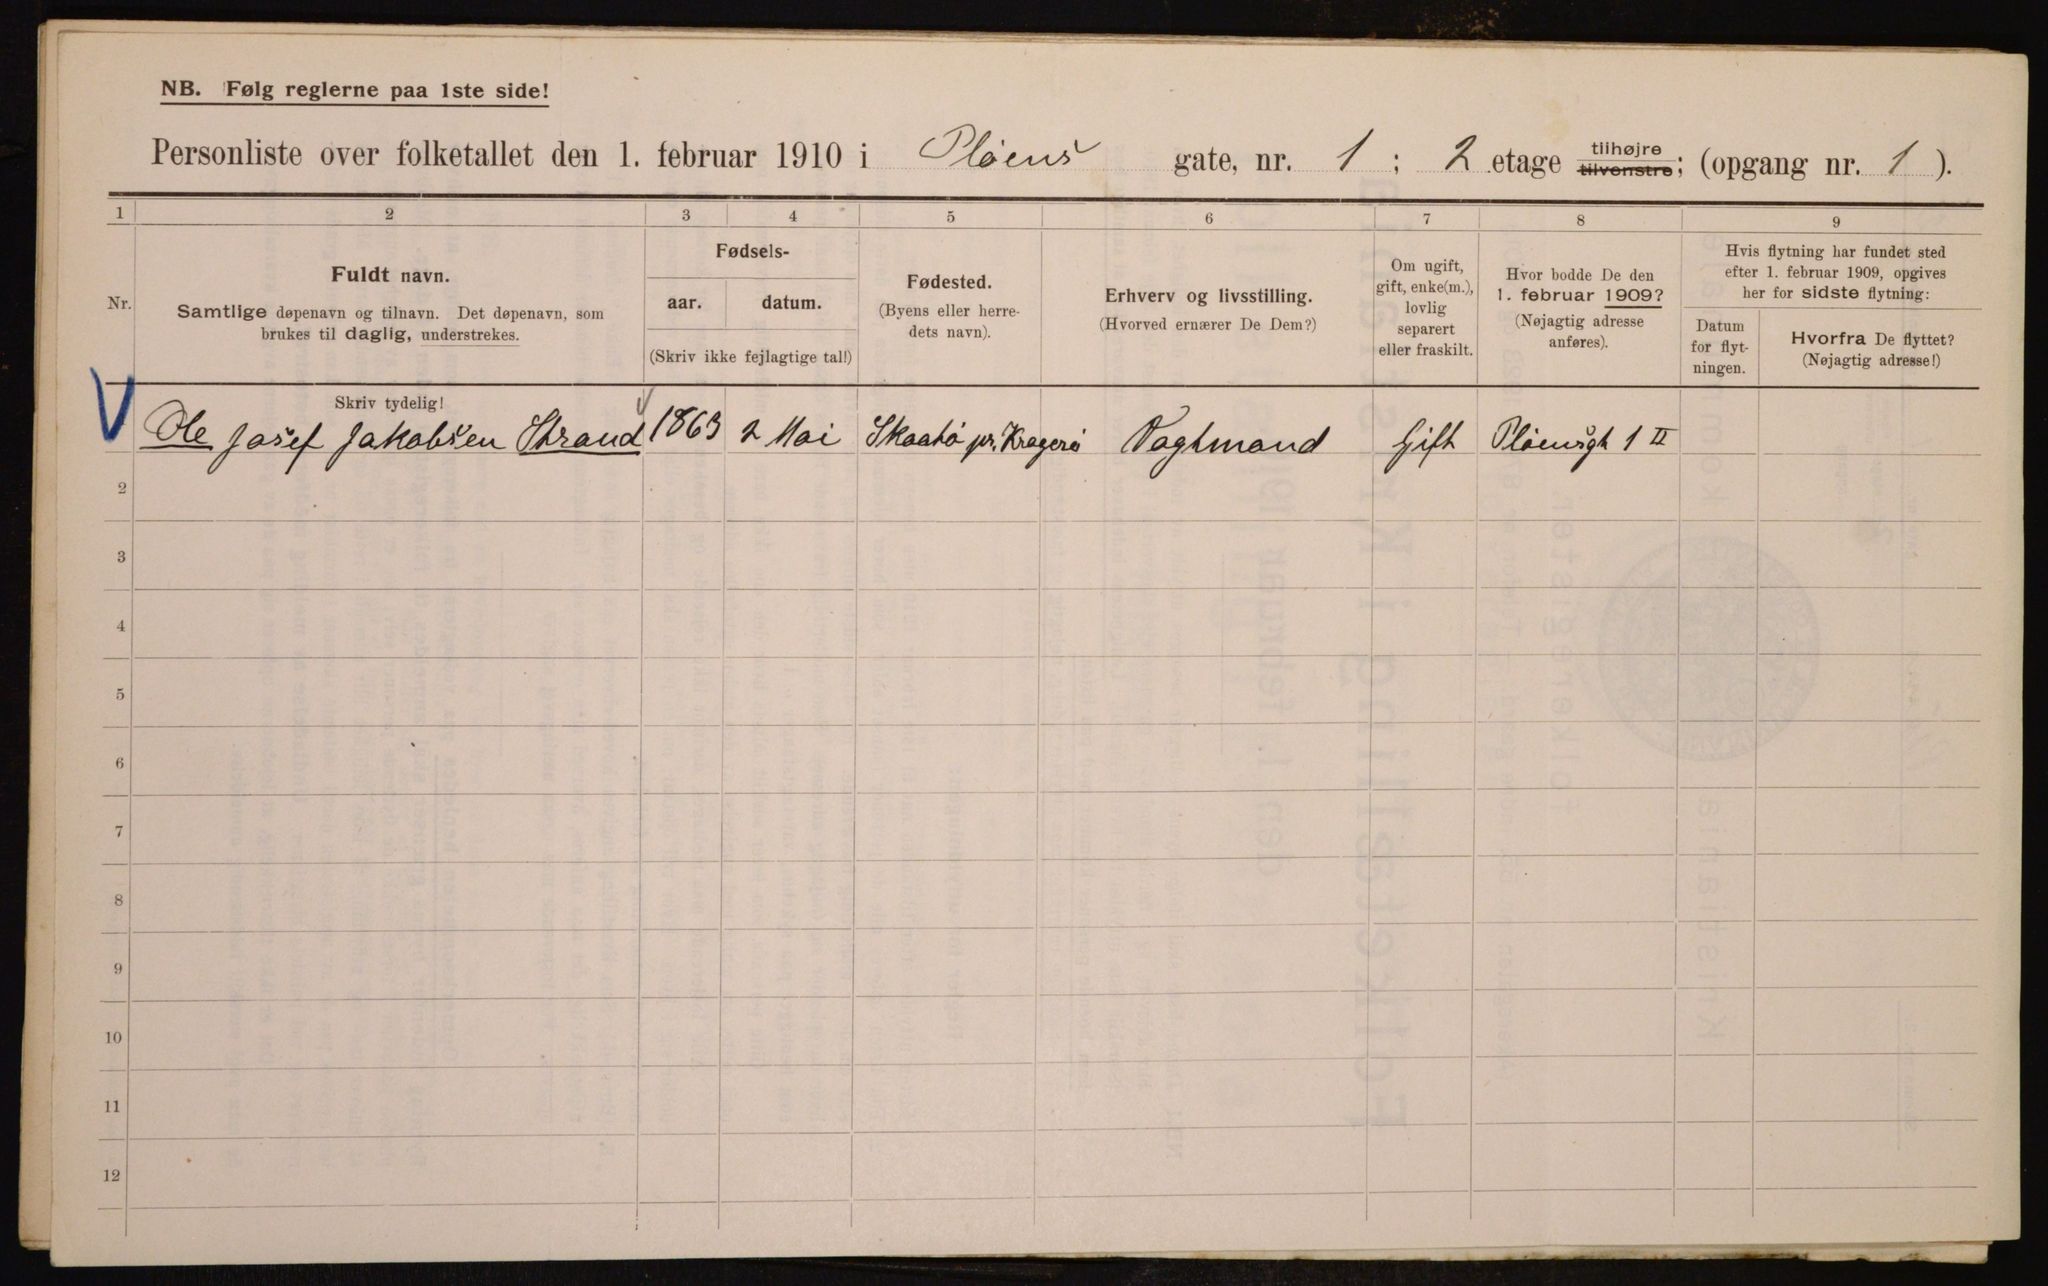 NB. Følg reglerne paa 1ste side!
Personliste over folketallet den 1. februar 1910 i Pløens gate, nr. 1 ; 2 etage tilhøjre tilvenstre; (opgang nr. 1 ).
1 2 3 4 5 6 7 8 9
Nr.
Fuldt navn.
Samtlige døpenavn og tilnavn. Det døpenavn, som
brukes til daglig, understrekes.
Fødsels-
aar. datum.
(Skriv ikke fejlagtige tal!)
Fødested.
(Byens eller herre-
dets navn).
Erhverv og livsstilling.
(Hvorved ernærer De Dem?)
Om ugift,
gift, enke(m.),
lovlig
separert
eller fraskilt.
Hvor bodde De den
1. februar 1909?
(Nøjagtig adresse
anføres).
Hvis flytning har fundet sted
efter 1. februar 1909, opgives
her for sidste flytning:
Datum
for flyt-
ningen.
Hvorfra De flyttet?
(Nøjagtig adresse!)
Skriv tydelig!
Ole Josef Jakobsen Strand 1863 2 Mai Skaatø pr. Kragerø Vagtmand Gift Pløensgt 1 II
2
3
4
5
6
7
8
9
10
11
12